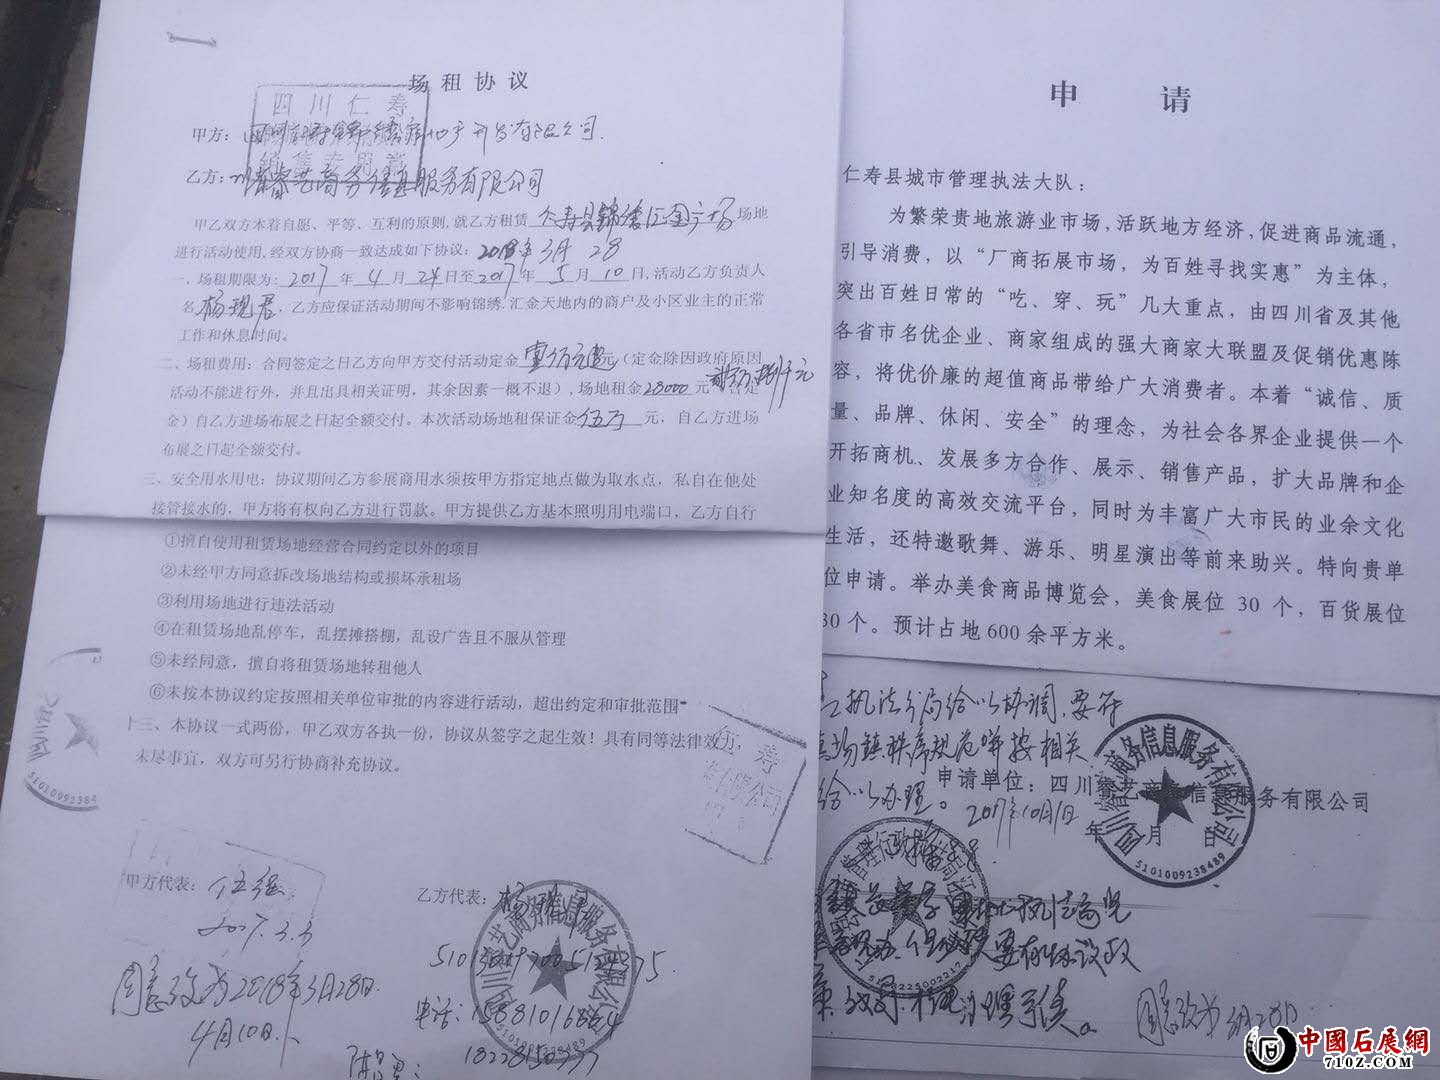 场租协议
四川仁寿
销售专用章
甲方：
乙方：商务信息服务有限公司
甲乙双方本着自愿、平等、互利的原则,就乙方租赁 仁寿县锦绣汇金广场 场地
进行活动使用,经双方协商一致达成如下协议：2018年3月28
一、场租期限为：2017年4月24日至2017年5月10日,活动乙方负责人
名 ，乙方应保证活动期间不影响锦绣.汇金天地内的商户及小区业主的正常
工作和休息时间。
二、场租费用：合同签定之日乙方向甲方交付活动定金 元（定金除因政府原因
活动不能进行外，并且出具相关证明，其余因素一概不退），场地租金28000元
金）自乙方进场布展之日起全额交付。本次活动场地租保证金伍万元，自乙方进场
布展之日起全额交付。
三、安全用水用电：协议期间乙方参展商用水须按甲方指定地点做为取水点，私自在他处
接管接水的，甲方将有权向乙方进行罚款。甲方提供乙方基本照明用电端口，乙方自行
①擅自使用租赁场地经营合同约定以外的项目
②未经甲方同意拆改场地结构或损坏承租场
③利用场地进行违法活动
④在租赁场地乱停车，乱摆摊搭棚，乱设广告且不服从管理
⑤未经同意，擅自将租赁场地转租他人
⑥未按本协议约定按照相关单位审批的内容进行活动，超出约定和审批范围
十三、本协议一式两份，甲乙双方各执一份，协议从签字之起生效！具有同等法律效力，
未尽事宜，双方可另行协商补充协议。
甲方代表：伍强
2017.3.3
同意改为2018年3月28日
4月10日
乙方代表：杨
电话：15881016864
18228150337
申请
仁寿县城市管理执法大队：
为繁荣贵地旅游业市场，活跃地方经济，促进商品流通，
引导消费，以“厂商拓展市场，为百姓寻找实惠”为主体，
突出百姓日常的“吃、穿、玩”几大重点，由四川省及其他
各省市名优企业、商家组成的强大商家大联盟及促销优惠陈
容，将优价廉的超值商品带给广大消费者。本着“诚信、质
量、品牌、休闲、安全”的理念，为社会各界企业提供一个
开拓商机、发展多方合作、展示、销售产品，扩大品牌和企
业知名度的高效交流平台，同时为丰富广大市民的业余文化
生活，还特邀歌舞、游乐、明星演出等前来助兴。特向贵单
位申请。举办美食商品博览会，美食展位 30 个，百货展位
30 个。预计占地 600 余平方米。
执法分局给以协调,要符
场镇秩序规范 按相关
给以办理。
申请单位：四川 艺商 信息服务有限公司
2017年10月1日
年 月 日
5101009238489
同意改为3月28日
中國石展網
710Z.COM